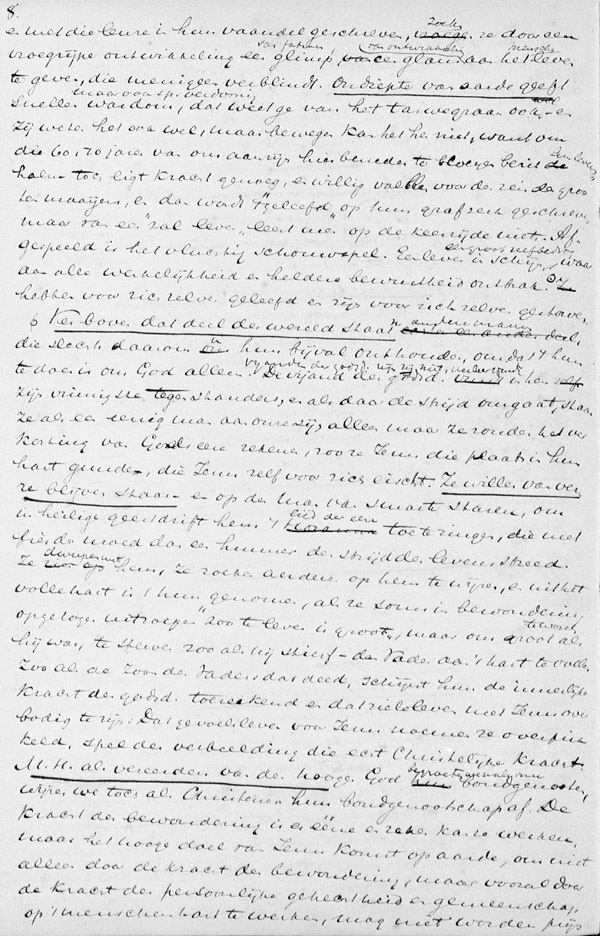 8.
en met die leuze in hun vaandel geschreven, zoeken ze door een
vroegrijpe ontwikkeling een glimp, van ontwikkelde mensch glans aan het leven
te geven, die menigeen verblindt. Ondiepte van aarde geeft
sneller wasdom, dat weet ge van het tarwegraan ook, en
zij weten het ook wel, maar bewegen kan het hen niet, want om
die 60, 70 jaren van ons aanzijn hier beneden te bloeyen
toch ligt kracht genoeg, en willig vallen voor de zeis des groo
ten maaijers, en dan wordt "geleefd" op hun grafzerk geschreven,
maar van een "zal leven" leest men op de keerzijde niet. Af-
gespeeld is het vluchtig schouwspel. Een leven in schijn, waar
aan alle werkelijkheid en heldere bewustheid ontbrak. Ze
hebben voor zich zelve geleefd en zijn voor zich zelve gestorven.
Ver boven dat deel der wereld staat 'n ander deel,
die slechts daarom hun bijval onthouden, omdat 't hun
te doen is om God alleen. Vijanden der godsd. zijn zij niet,
zijn vinnigste tegenstanders, en als daar de strijd omgaat, staan
ze als een eenig man aan onze zijde, alleen maar ze zouden het ver
korting van Gods eere rekenen, zoo ze Jezus die plaats in hun
hart gunden, die Jezus zelf voor zich eischt. Ze willen van ver
re blijven staan - en op den man van smarte staren, om
in heilige geestdrift hem 't lied der eere toe te zingen, die met
fieren moed daar en hunner den strijd des levens streed.
Ze hem, ze zoeken anderen op hem te wijzen, en uit het
volle hart is 't hun genomen, als ze soms in bewondering
opgetogen uitroepen "zoo te leven is groot," maar om groot te worden als
hij was, te sterven zoo als hij stierf - den Vader aan 't hart te vallen
zoo als de Zoon des Vaders dat deed, schijnt hun de innerlijke
kracht der godsd. toereikend en dat zieleleven met Jezus over
bodig te zijn. Dat gevoelsleven voor Jezus noemen ze overprik
keld, spel der verbeelding die echt Christelijke kracht.
M.H. als vereerders van den hoogen God bondgenooten,
wijzen we toch als Christenen hun bondgenootschap af. De
kracht der bewondering is eene en zeker kan ze werken,
maar het hooge doel van Jezus komst op aarde, om niet
alleen door de kracht der bewondering, maar vooral door
de kracht der persoonlijke gehechtheid en gemeenschap
op 's menschen hart te werken, mag niet worden prijs